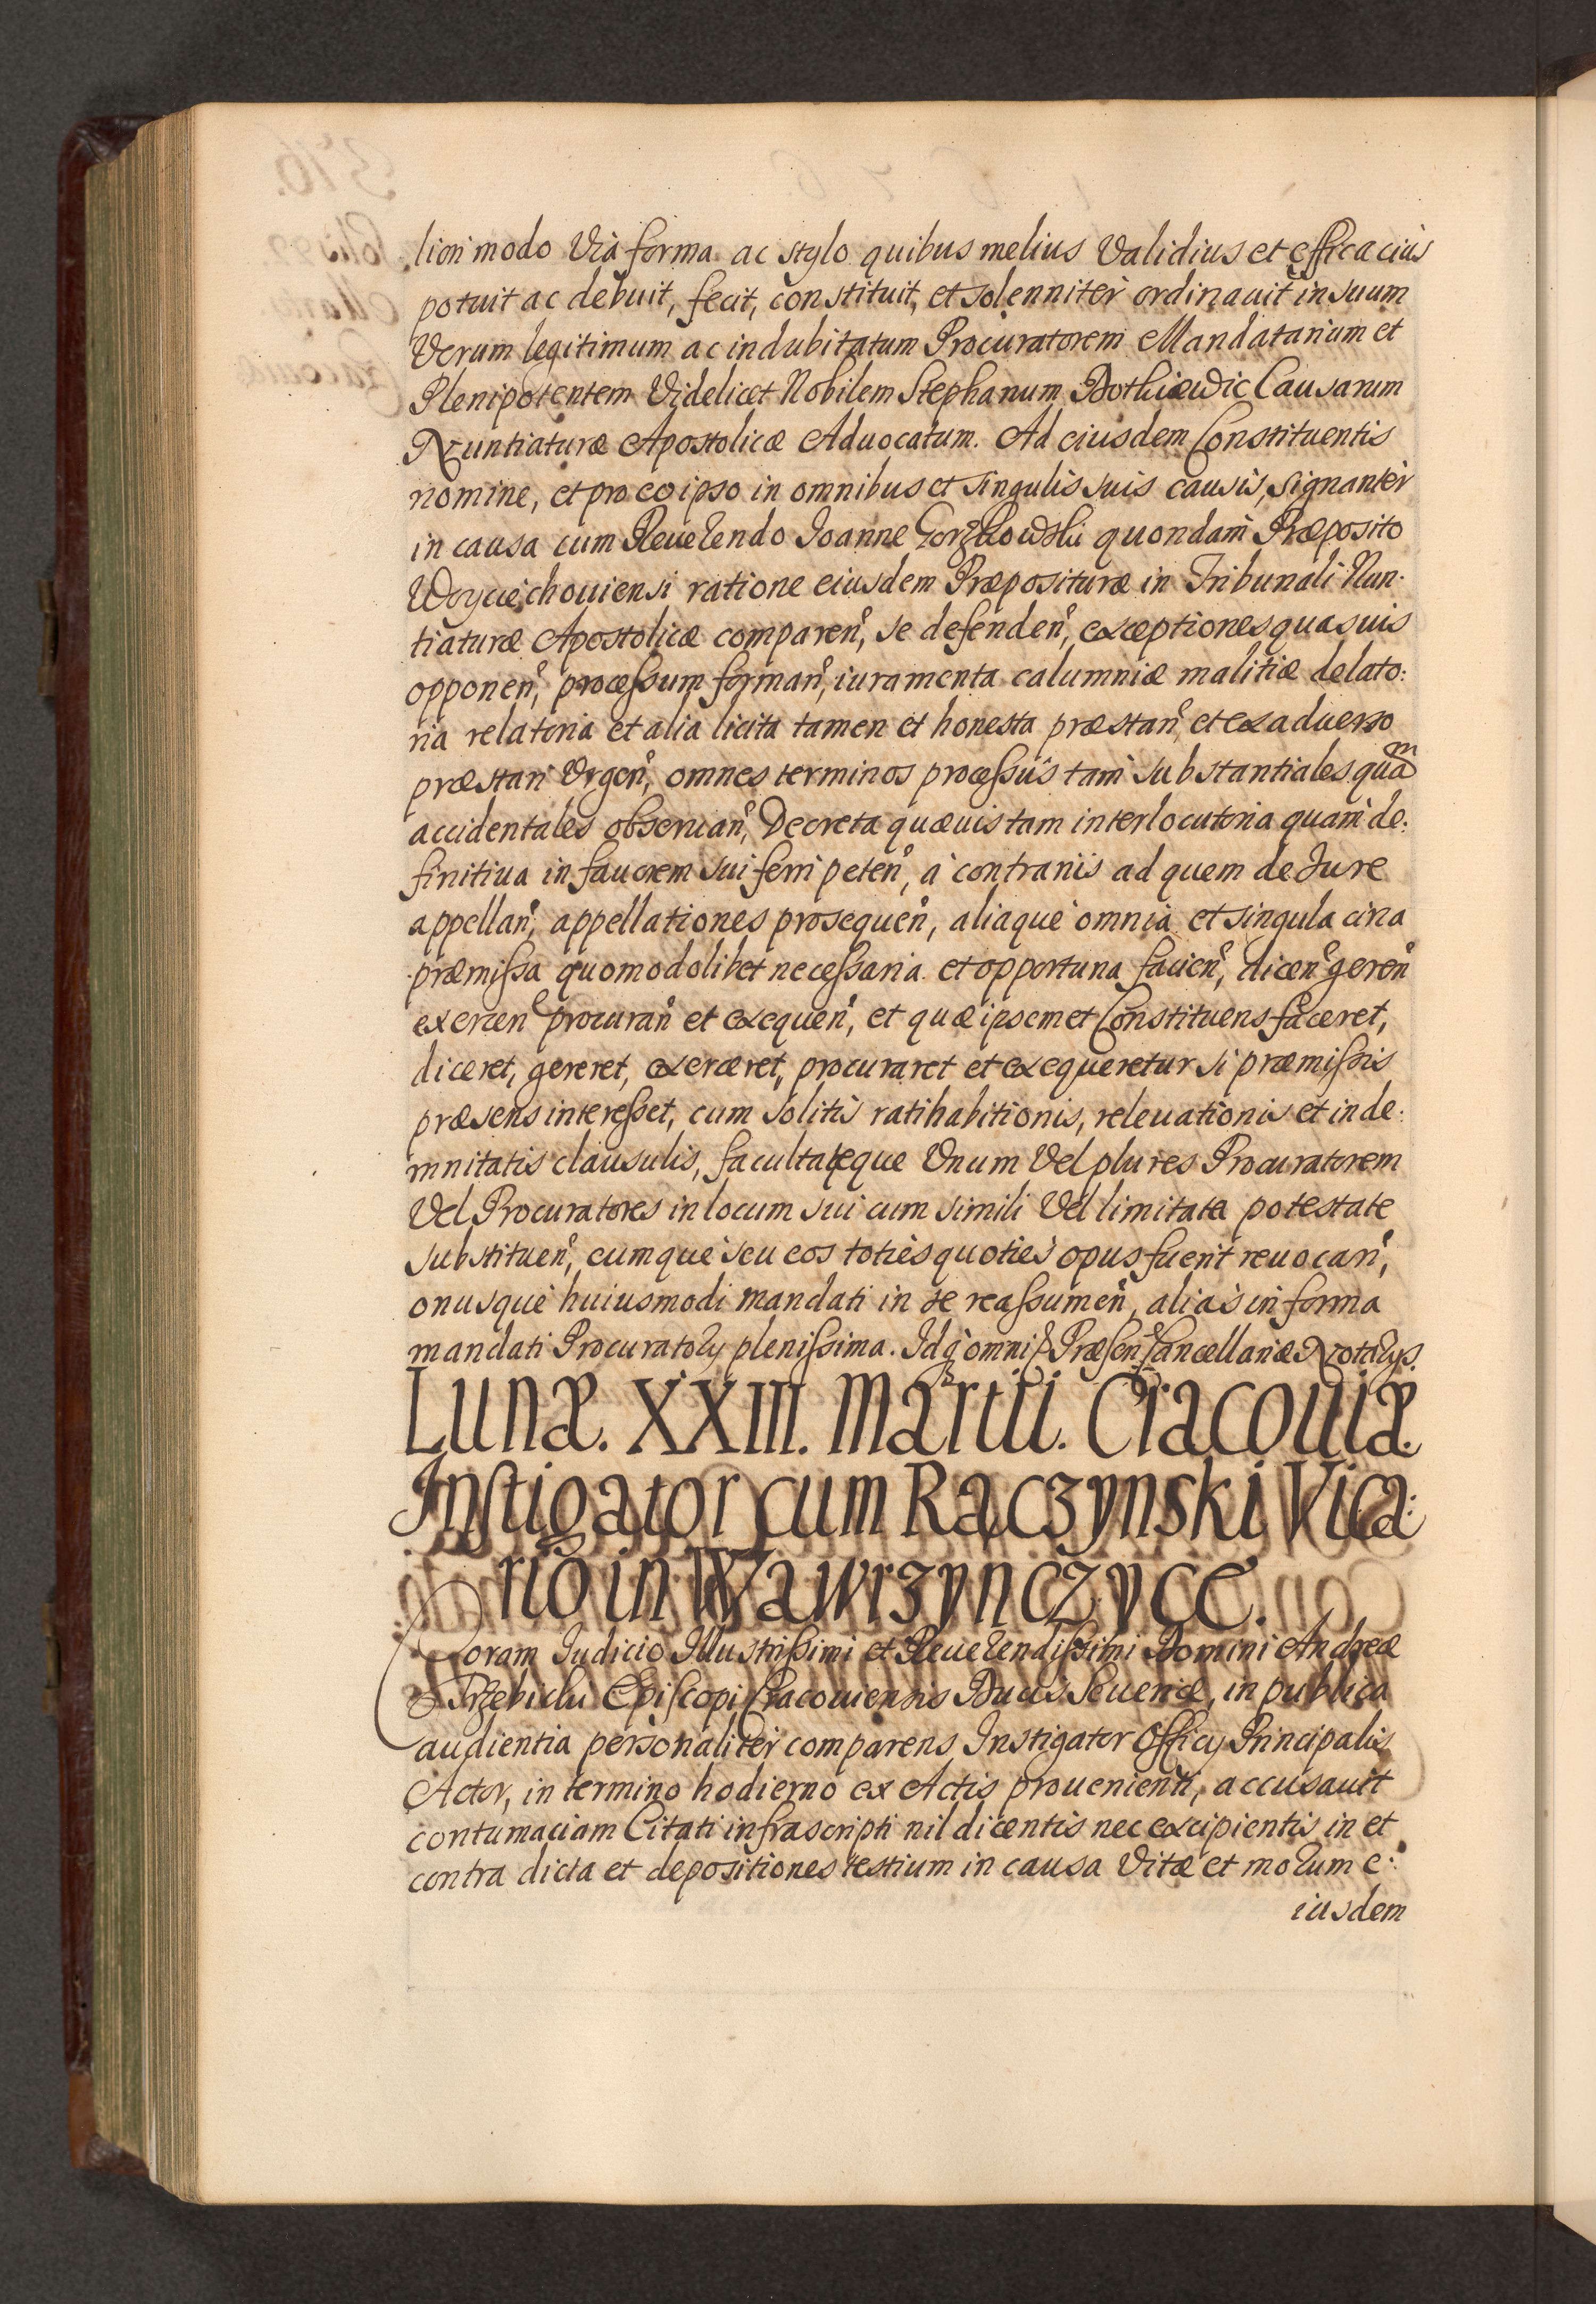 liori modo Via forma ac stylo quibus melius Validius et efficaciùs
potuit ac debuit, fecit, constituit, et solenniter ordinauit in suum
Verum legitimum ac indubitatum Procuratorem Mandatarium et
Plenipotentem Videlicet Nobilem Stephanum Causarum
Nuntiaturæ Apostolicæ Aduocatum. Ad eiusdem Constituentis
nomine, et pro eo ipso in omnibus et singulis suis causis, signanter
in causa cum Reuerendo Ioanne Gorzkowski quondam Præposito
Woyciechouiensi ratione eiusdem Præposituræ in Tribunali Nun:
tiaturæ Apostolicæ comparen, se defenden, exceptiones quasuis
opponen, processum forman, iuramenta calumniæ malitiæ delato:
ria relatoria et alia licita tamen et honesta præstan, et ex aduerso
præstari Vrgen, omnes terminos processus tam substantiales quam
accidentales obseruan, Decreta quæuis tam interlocutoria quam de:
finitiua in fauorem sui ferri peten, à contrariis ad quem de Iure
appellan, appellationes prosequen, aliaque omnia et singula circa
præmissa quomodolibet necessaria et opportuna facien, dicen geren
exercen procuran et exequen, et quæ ipsemet Constituens faceret,
diceret, gereret, exerceret, procuraret et exequeretur si præmissis
præsens interesset, cum solitis ratihabitionis, releuationis et inde:
mnitatis clausulis, facultateque Vnum Vel plures Procuratorem
Vel Procuratores in locum sui cum simili Vel limitata potestate
substituen, eumque seu eos toties quoties opus fuerit reuocan,
onusque huiusmodi mandati in se reassumen, alias in forma
mandati Procuratorij plenissima. Idq omni Præsen Cancellariæ Notarijs.
Lunæ. XXIII. Martii. Cracouiæ.
Instigator cum Raczynski Vica:
rio in Wawrzynczyce.
Coram Iudicio Illustrissimi et Reuerendissimi Domini Andreæ
Trzebicki Episcopi Cracouiensis Ducis Seueriæ, in publica
audientia personaliter comparens Instigator Officij Principalis
Actor, in termino hodierno ex Actis prouenienti, accusauit
contumaciam Citati infrascripti nil dicentis nec excipientis in et
contra dicta et depositiones testium in causa Vitæ et morum e:
iusdem